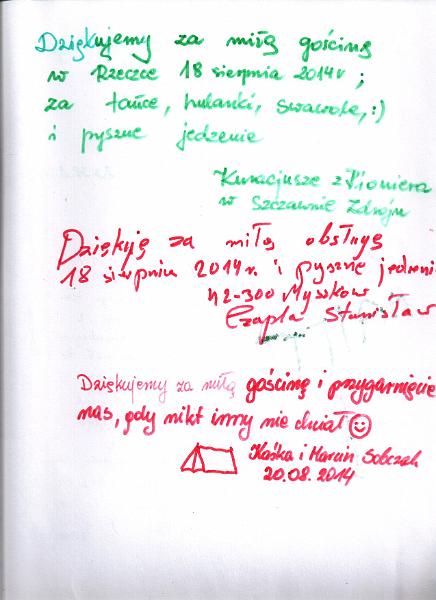 Dziękujemy za miłą gościnę
w Rzeczce 18 sierpnia 2014r ;
za tańce, hulanki, swawole, :)
i pyszne jedzenie
Kuracjusze z Pioniera
w Szczawnie Zdroju
Dziękuję za miłą obsługę
18 sierpnia 2014 r. i pyszne jedzeni
42-300 Myszków
Czapla Stanisław
Dziękujemy za miłą gościnę i przygarnięcie
nas, gdy nikt inny nie chciał
Kaśka i Marcin Sobczak
20.08.2014